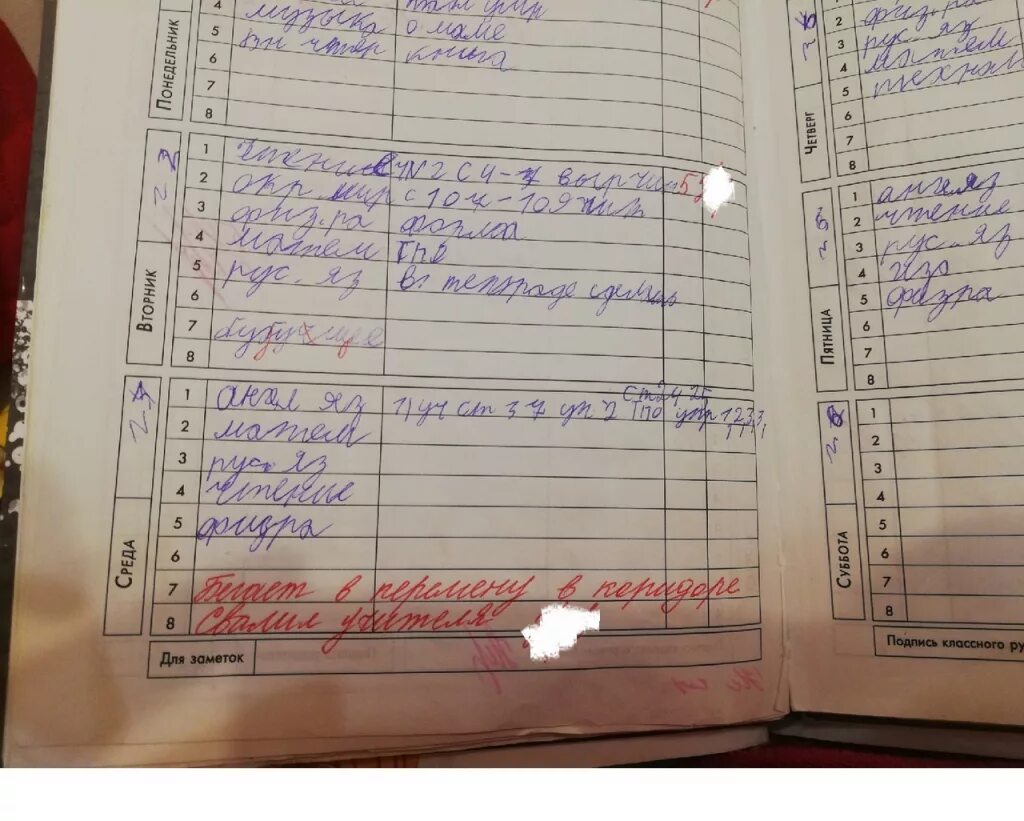 Понедельник
4
5 музыка о маме
6 вн чтен книга
7
8
23
Вторник
1 Чтение У№2 С 4-7 выр чит 5
2 окр. мир с 104-109 чит
3 физ.ра форма
4 матем
5 рус. яз в тетраде сделать
6
7
8
24
Среда
1 англ яз уч ст 37 уп 2 упр 1,2,3,
ст 24, 25
2 матем
3 рус. яз
4 чтение
5 физра
6
7 Бегает в перемену в коридоре
8 Свалил учителя
Для заметок
Четверг
2 физ.ра
3 рус. яз
4 матем
5
6
7
8
Пятница
1 анг яз
2 чтение
3 рус. яз
4 изо
5 физра
6
7
8
Суббота
1
2
3
4
5
6
7
8
Подпись классного ру